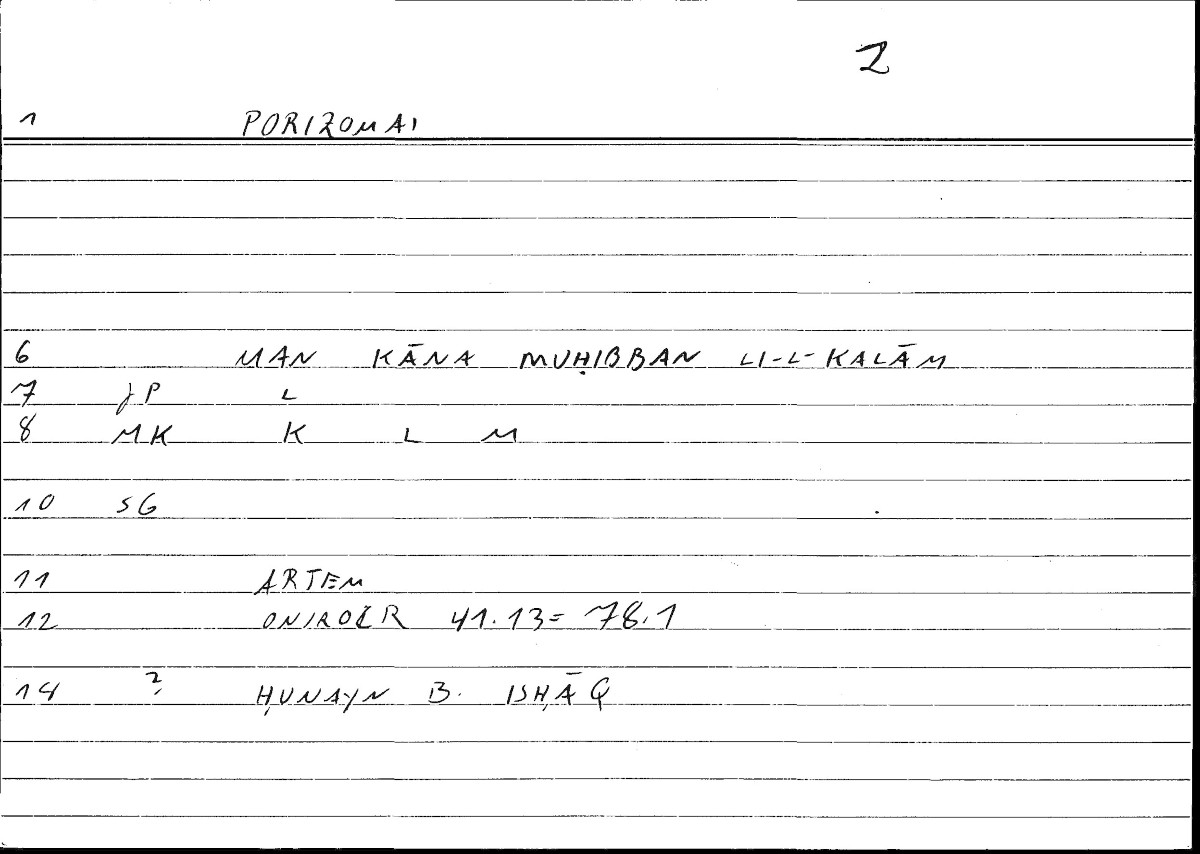 2
1 PORIZOMAI
6 MAN KĀNA MUḤIBBAN LI-L-KALĀM
7 JP L
8 MK K L M
10 SG
11 ARTEM
12 ONIROCR 41.13= 78.1
14 ? ḤUNAYN B. ISḤĀQ